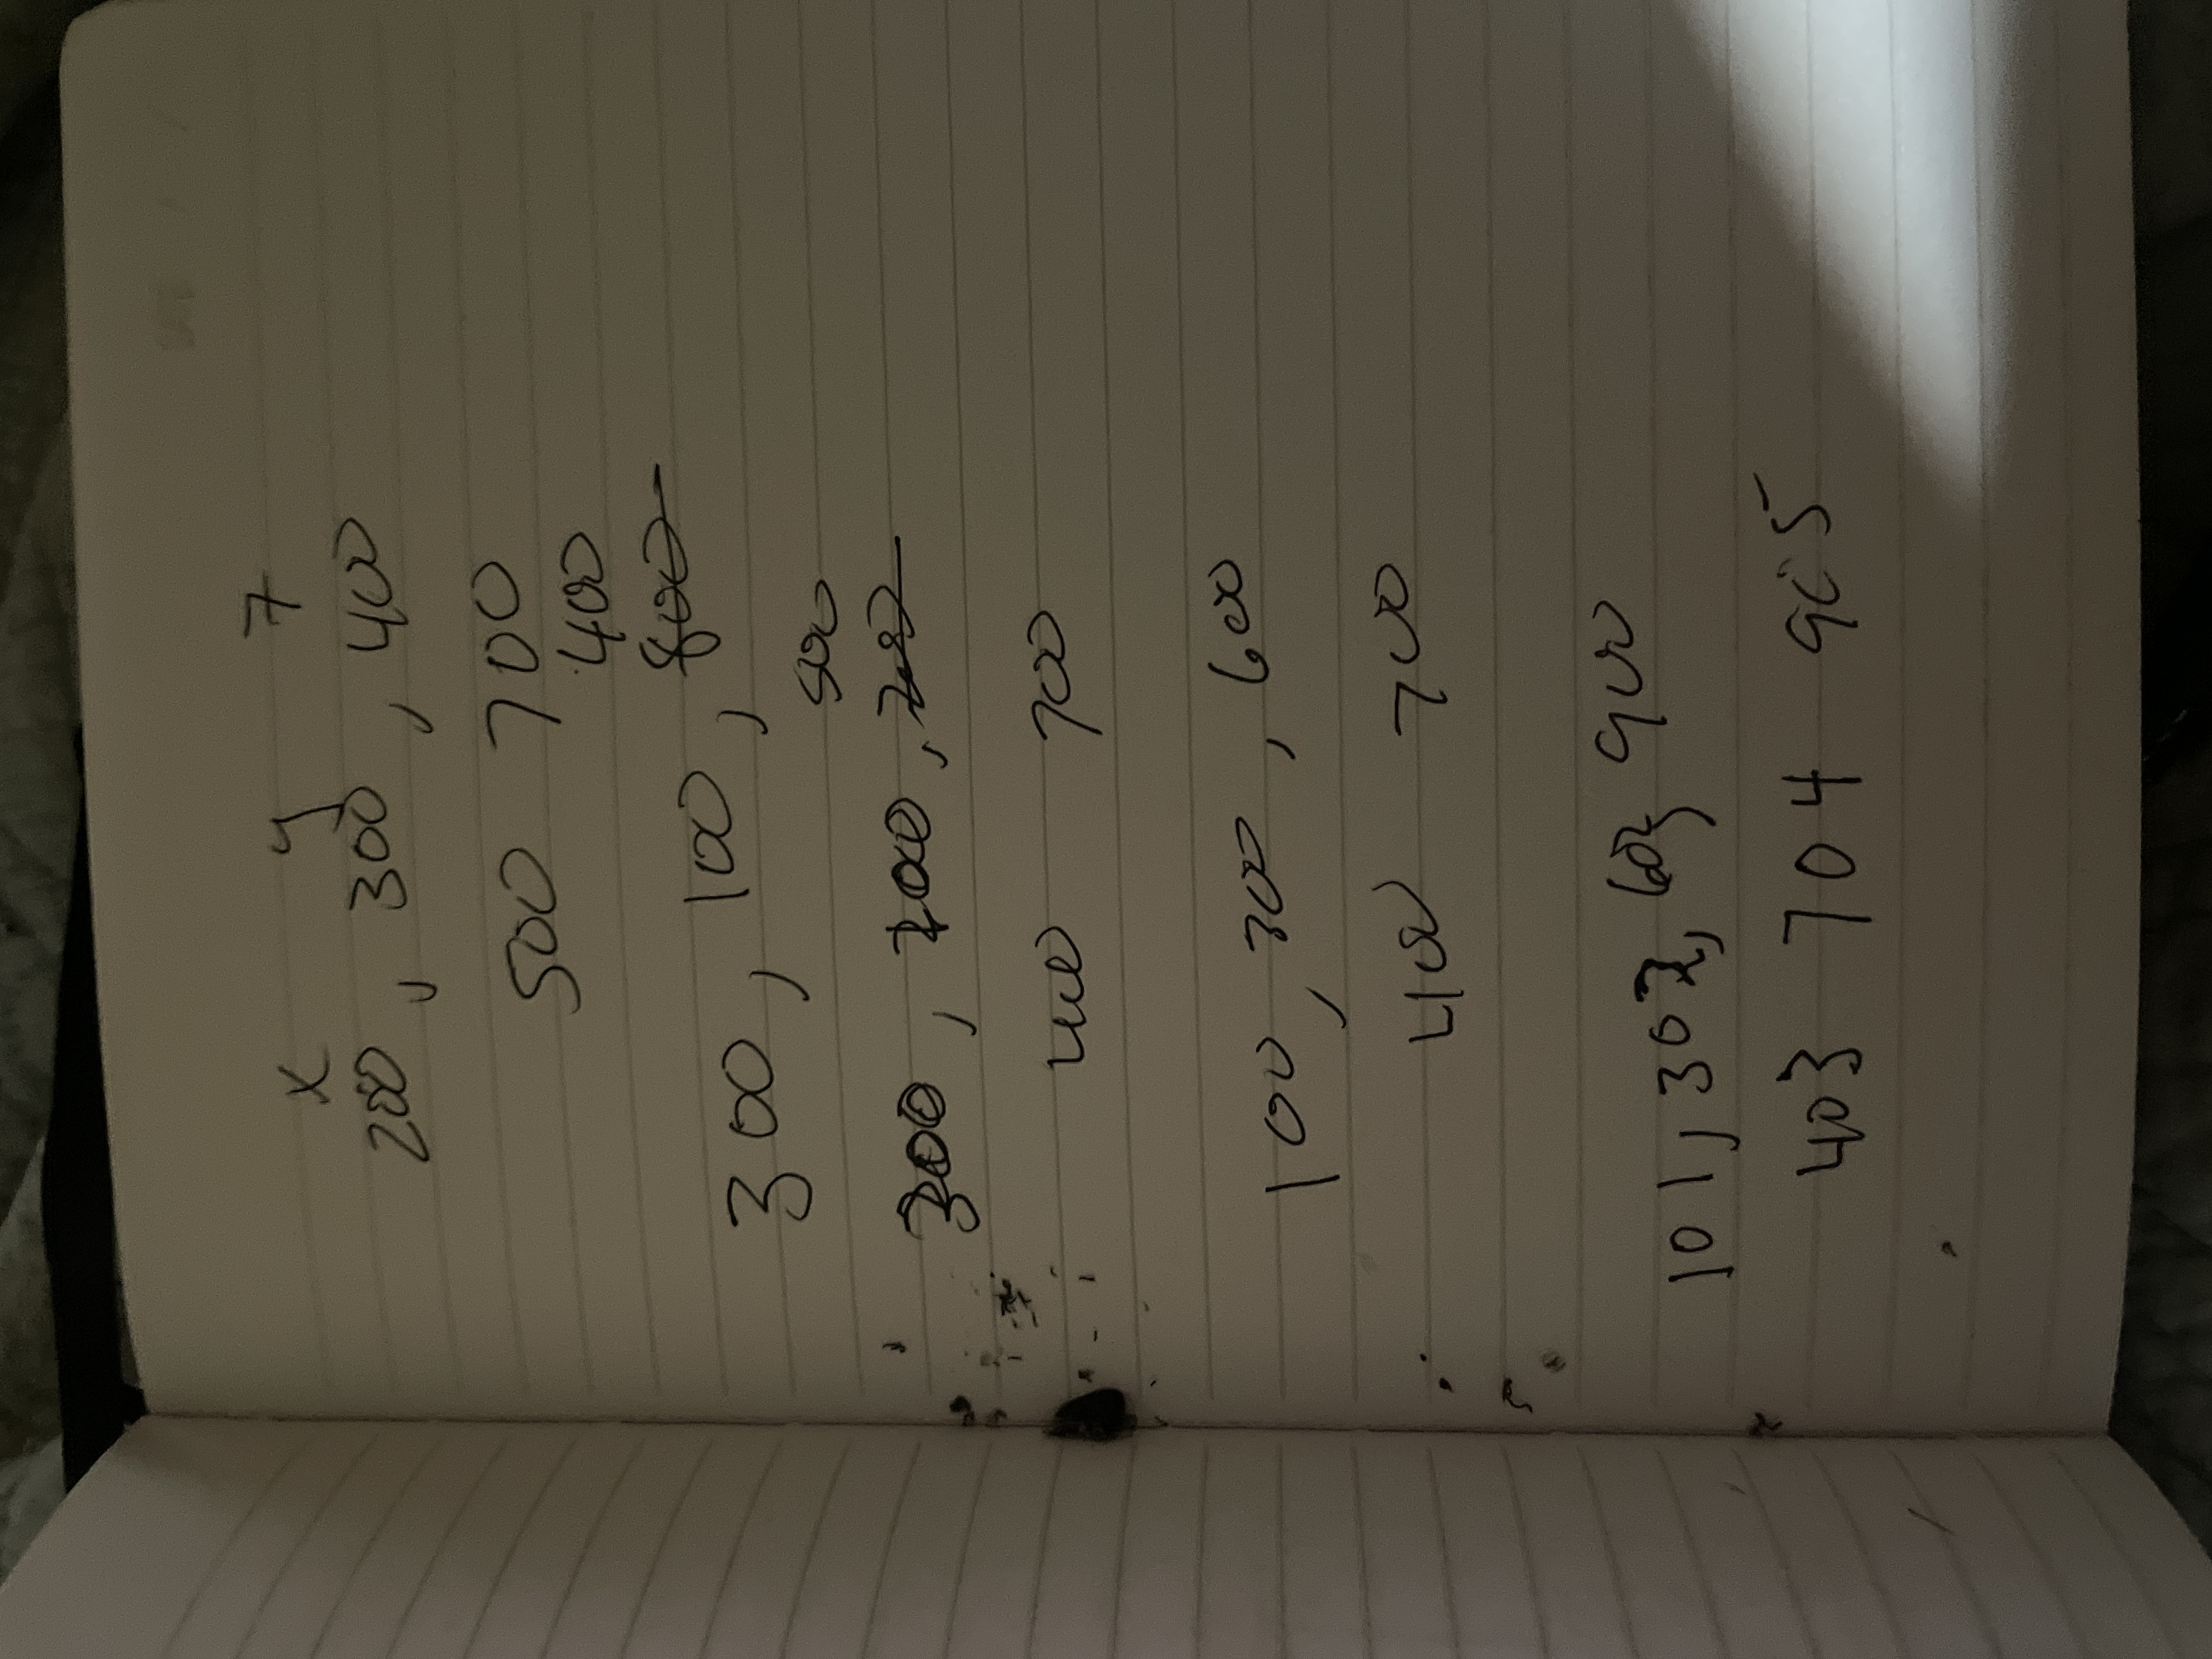 x y 7
200, 300, 400
500 700
400
300, 100, 800
500
300, 100, 700
400 700
100, 300, 600
400 700
101, 302, 603, 900
403 704 905